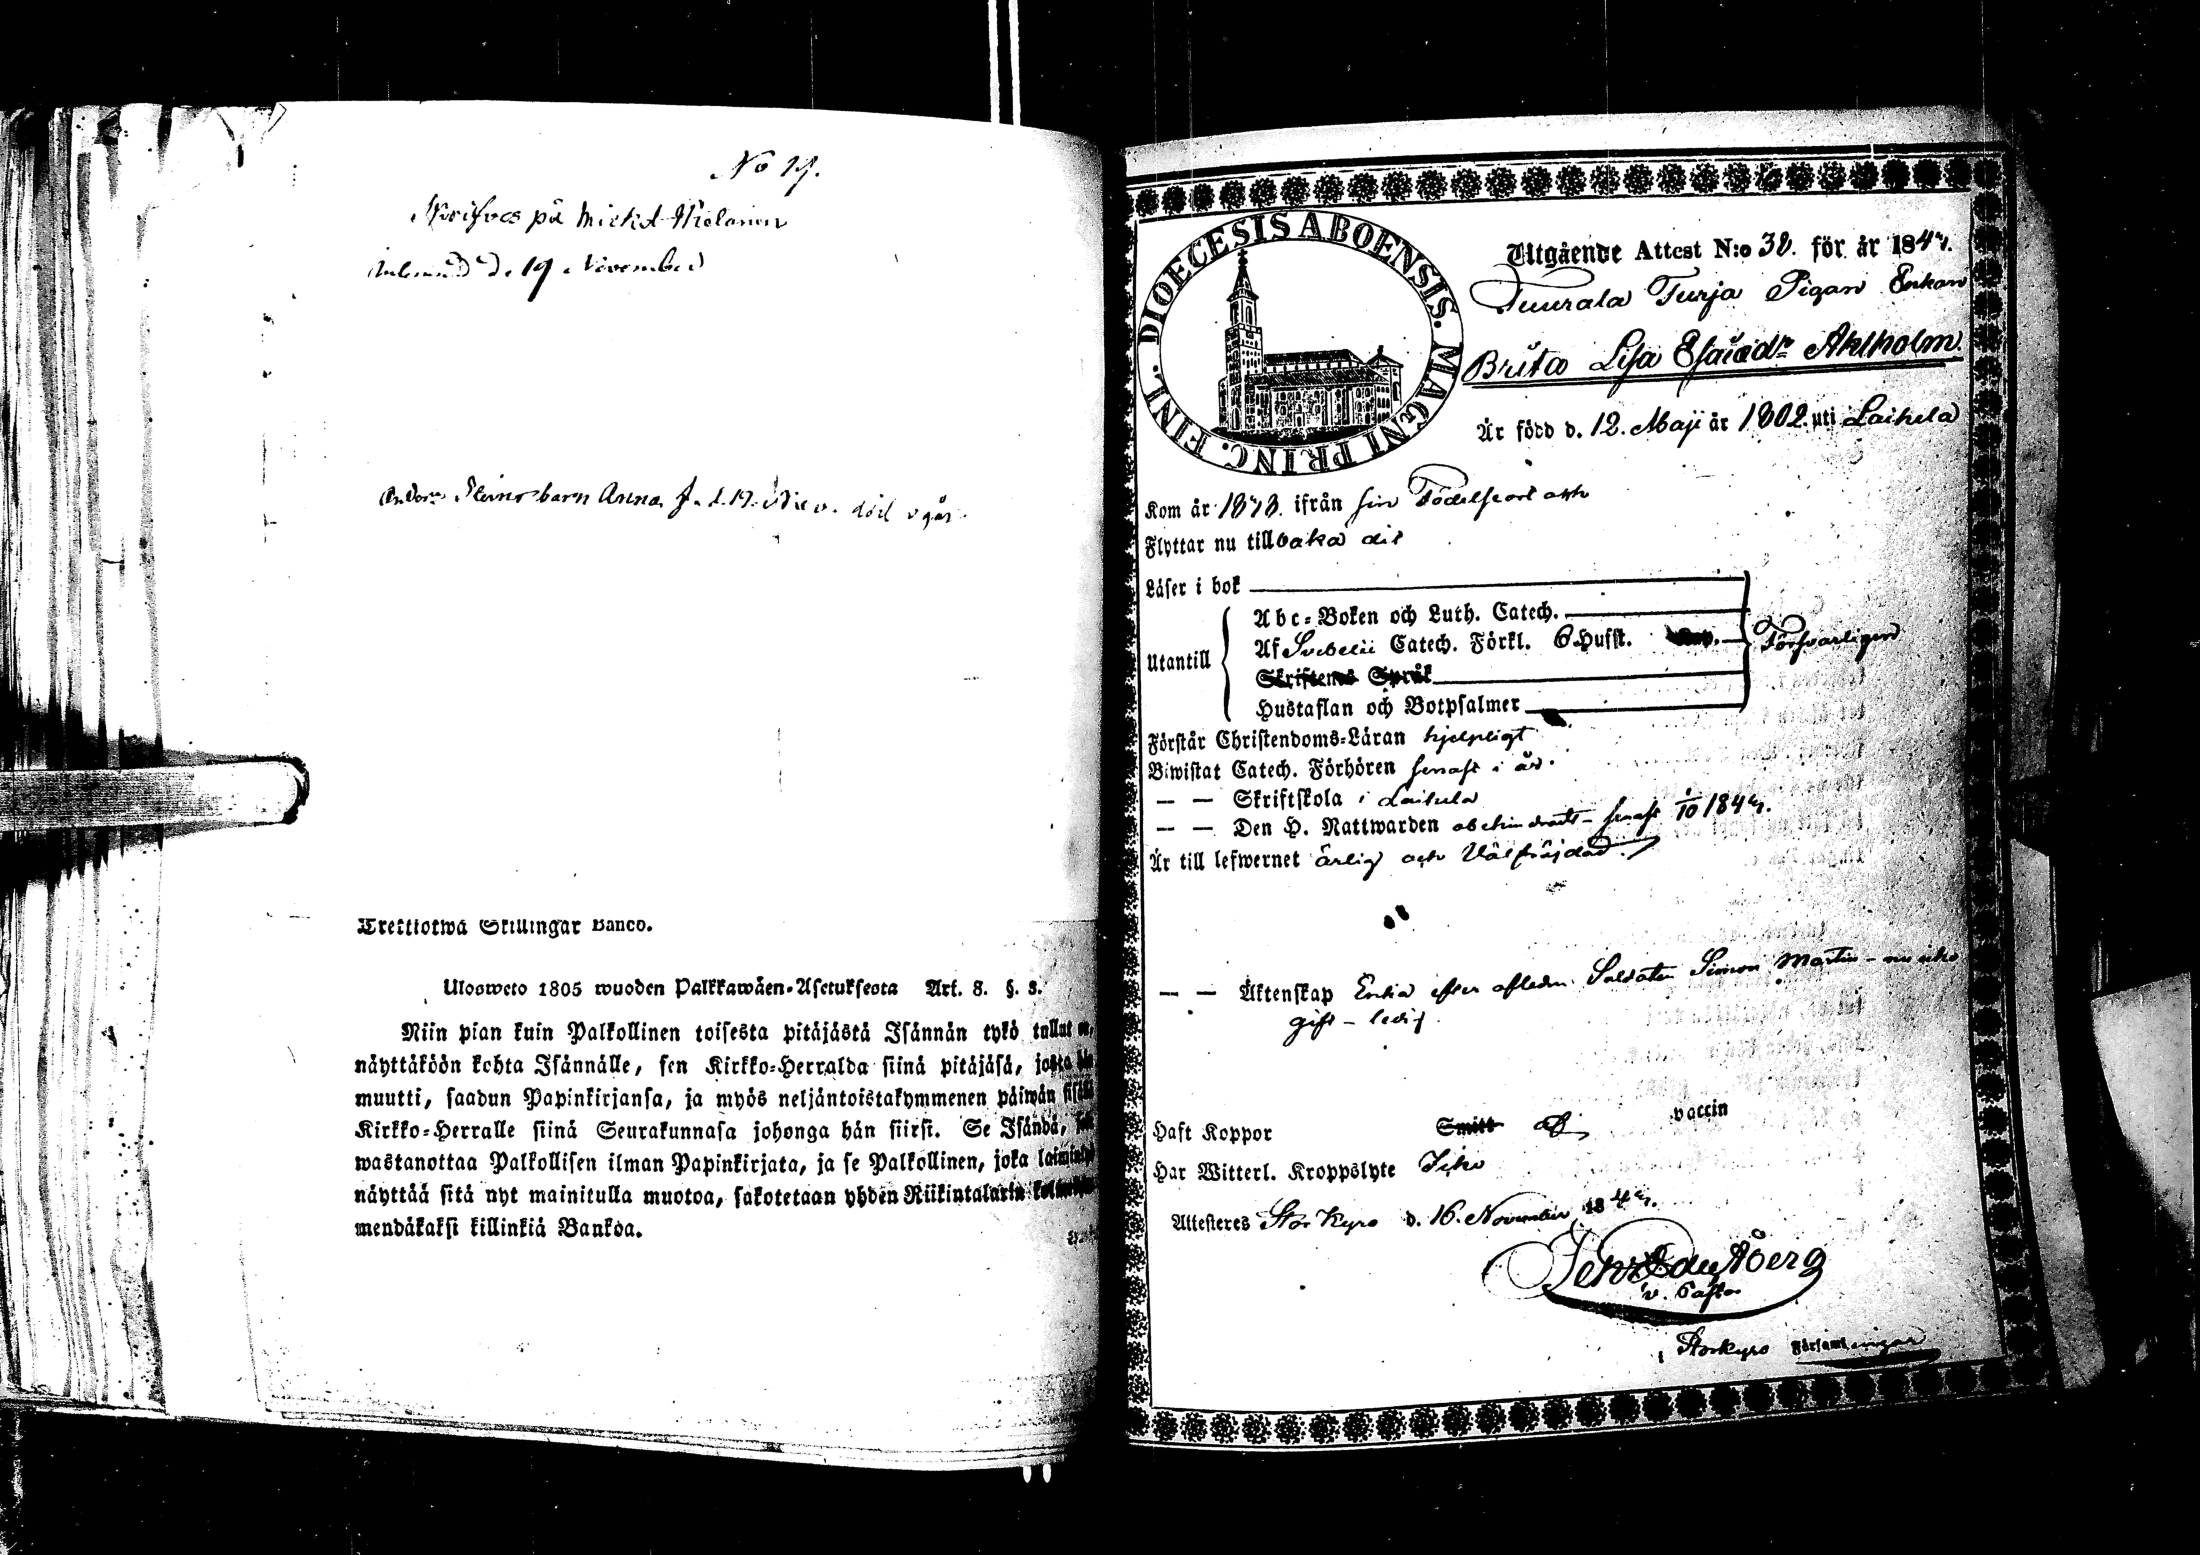 No 19.
på Mickel
d. 19 November
barn Anna f. d. 19 död
Trettiotwå Skillingar Banco.
Ulosweto 1805 wuoden Palkkawäen-Asetuksesta Art. 8. §. 3.
Niin pian kuin Palkollinen toisesta pitäjästä Isännän tykö tullut on,
näyttäköön kohta Isännälle, sen Kirkko-Herralda siinä pitäjäsä, josta hän
muutti, saadun Papinkirjansa, ja myös neljäntoistakymmenen päiwän sisällä
Kirkko-Herralle siinä Seurakunnasa johonga hän siirsi. Se Isändä,
wastanottaa Palkollisen ilman Papinkirjata, ja se Palkollinen, joka
näyttää sitä nyt mainitulla muotoa, sakotetaan yhden Riikintalarin
mendäkaksi killinkiä Bankoa.
DIOECESIS ABOENSIS. MAGNI PRINC. FINL.
Utgående Attest N:o 38. för år 184
Tuurala Turja Pigan Enkan
Brita Lisa Esaiædr Ahlholm
Är född d. 12. Maji år 1802. uti Laihela
Kom år 1843. ifrån sin Födelseort och
Flyttar nu tillbaka dit
Läser i bok
Utantill
Abc-Boken och Luth. Catech.
Af Svebelii Catech. Förkl. 6 Hufst.
Skriftenes Språk
Hustaflan och Botpsalmer
Försvarligen
Förstår Christendoms-Läran hjelpligt
Biwistat Catech. Förhören senast i år.
— — Skriftskola i Laihela
— — Den H. Nattwarden obehindradt - senast 1/10 184
Är till lefwernet ärlig och Välfräjdad.
— — Äktenskap Enka efter afledne Soldaten Simon Martin - nu icke
gift - ledig.
Haft Koppor Smitt af vaccin
Har Witterl. Kroppslyte Icke
Attesteras Stor Kyro d. 16. November 184
Åberg
v. Pastor
i Storkyro Församlingar